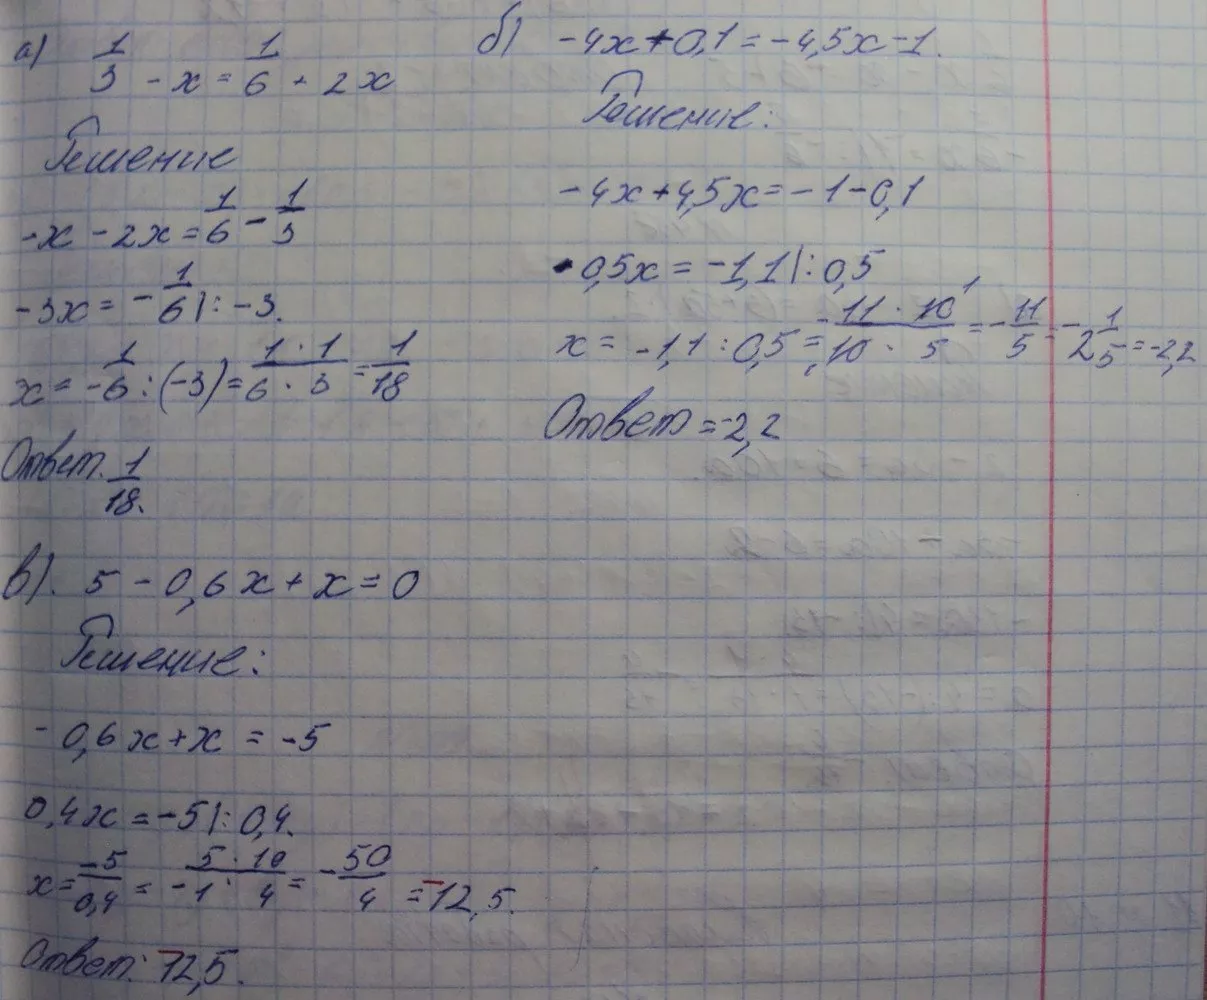 а) 1/3 - x = 1/6 + 2x
Решение
-x - 2x = 1/6 - 1/3
-3x = -1/6 |: -3.
x = -1/6 : (-3) = 1·1/6·3 = 1/18
Ответ. 1/18.
б) -4x+0,1 = -4,5x-1.
Решение:
-4x+4,5x = -1-0,1
0,5x = -1,1 |: 0,5
x = -1,1 : 0,5 = -11·10/10·5 = -11/5 = -2 1/5 = -2,2
Ответ = -2,2
в). 5 - 0,6x + x = 0
Решение:
-0,6x + x = -5
0,4x = -5 |: 0,4.
x = -5/0,4 = -5·10/1·4 = -50/4 = -12,5.
Ответ: -12,5.